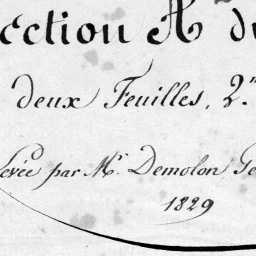 ection A d
deux Feuilles, 2.
Levée par Mr. Demolon Gé
1829